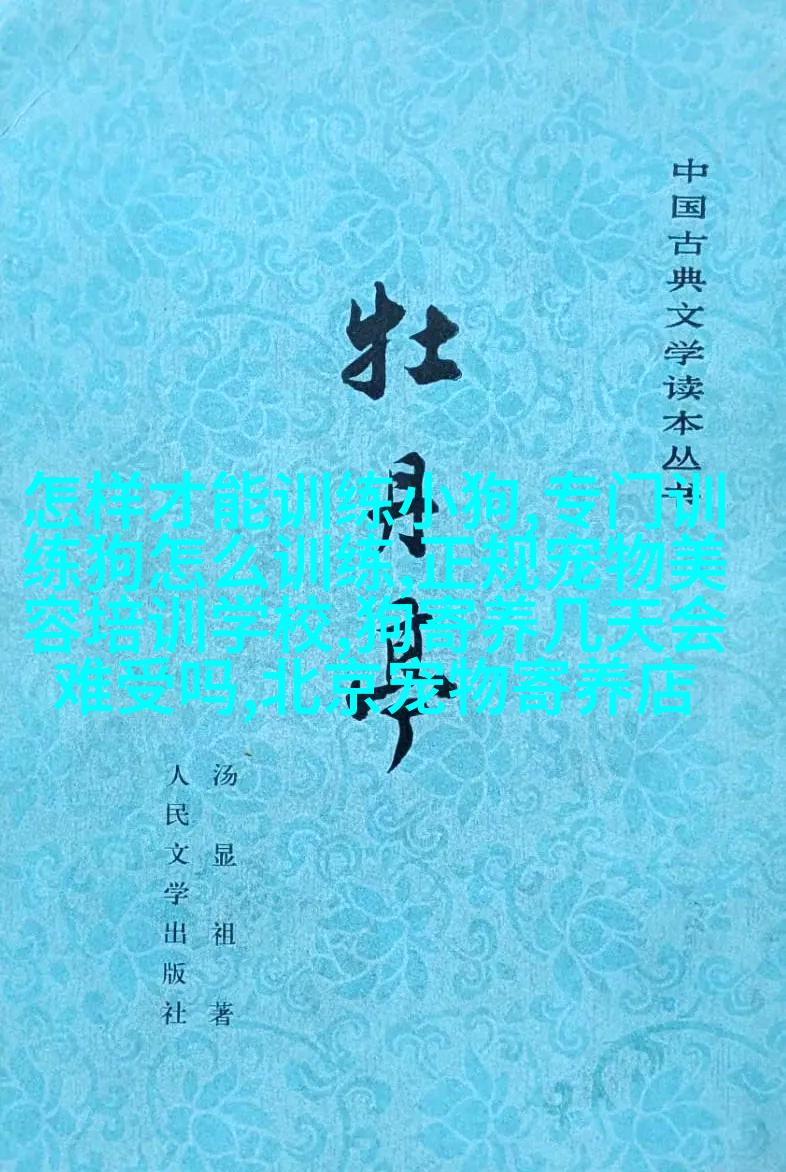 中国古典文学读本丛书
牡丹亭
怎样才能训练小狗,专门训
练狗怎么训练,正规宠物美
容培训学校,狗寄养几天会
难受吗,北京宠物寄养店
汤显祖著
人民文学出版社